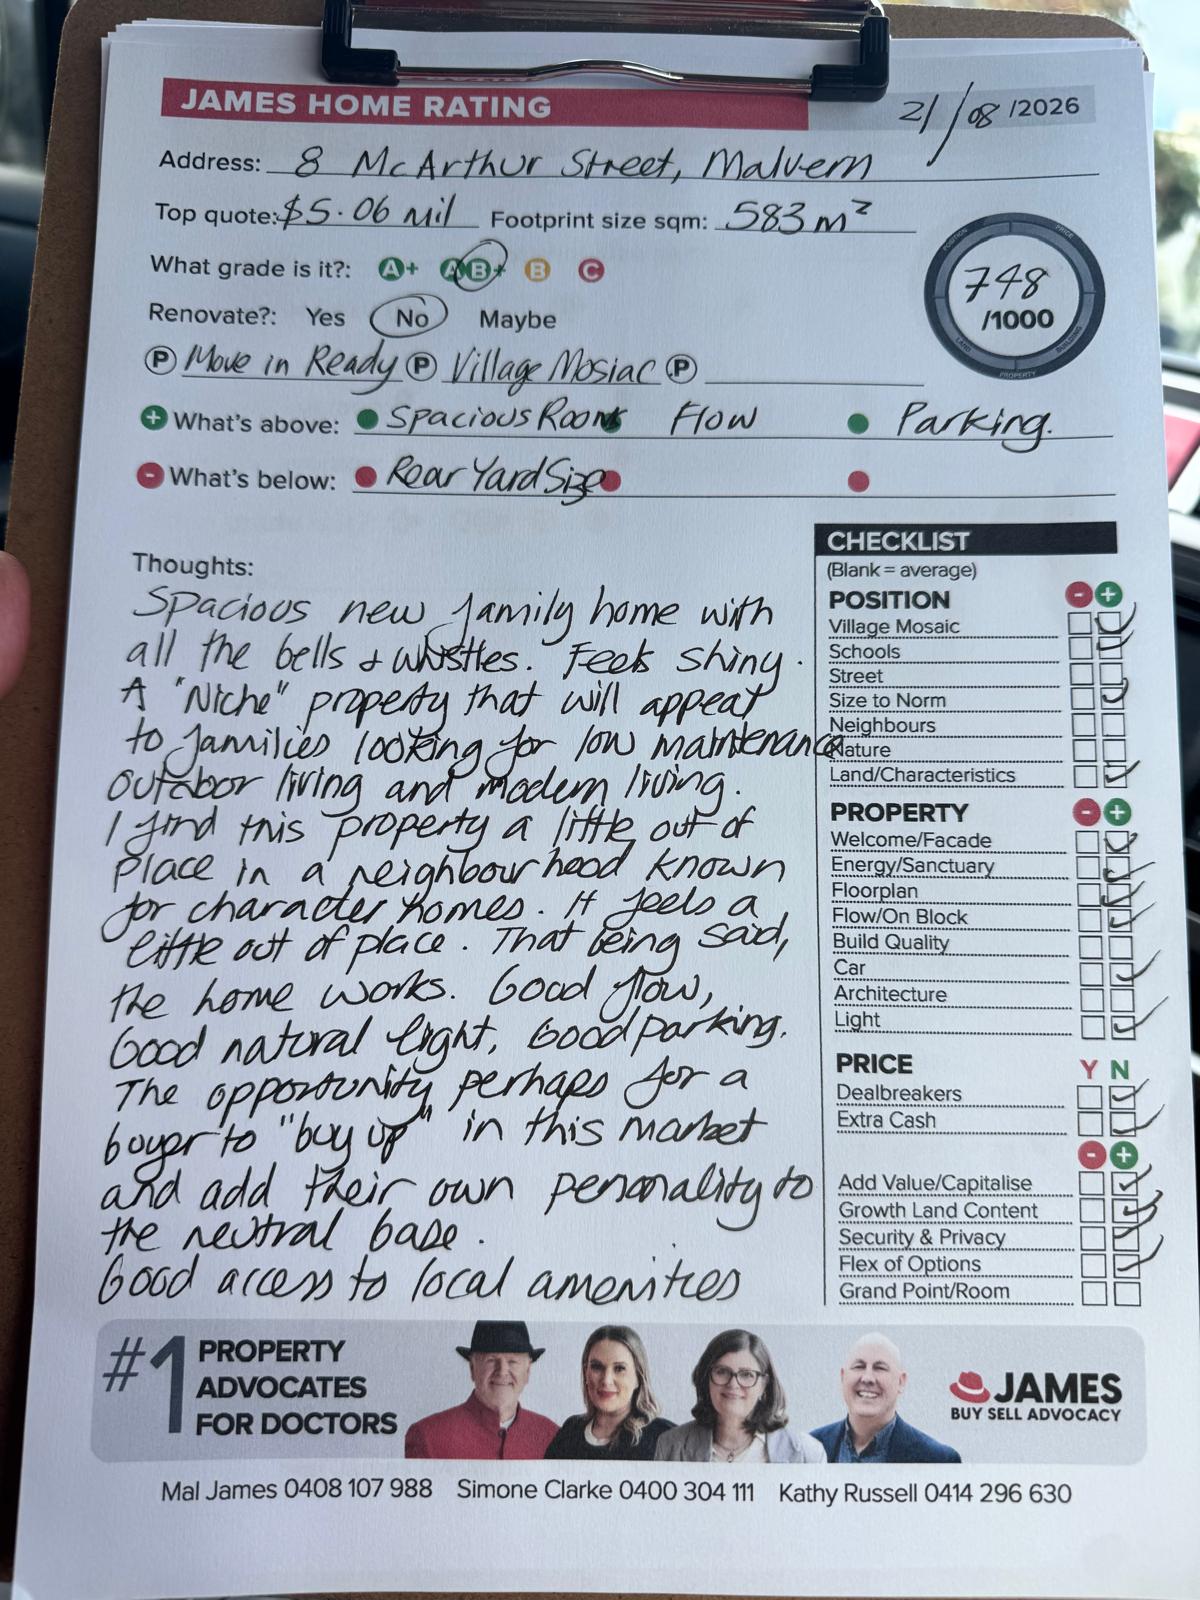 JAMES HOME RATING
21/08/2026
Address: 8 McArthur Street, Malvern
Top quote: $5.06 mil Footprint size sqm: 583m²
What grade is it?: A+ AB+ B C
748
/1000
POSITION PRICE BUILDING PROPERTY LAND
Renovate?: Yes No Maybe
P Move in Ready P Village Mosiac P
+ What's above: Spacious Rooms Flow Parking.
- What's below: Rear Yard Size
Thoughts:
Spacious new family home with
all the bells & whistles. Feels shiny.
A "Niche" property that will appeal
to families looking for low maintenance
outdoor living and modern living.
I find this property a little out of
place in a neighbourhood known
for character homes. It feels a
little out of place. That being said,
the home works. Good flow,
Good natural light, Good parking.
The opportunity perhaps for a
buyer to "buy up" in this market
and add their own personality to
the neutral base.
Good access to local amenities
CHECKLIST
(Blank = average)
POSITION - +
Village Mosaic
Schools
Street
Size to Norm
Neighbours
Nature
Land/Characteristics
PROPERTY - +
Welcome/Facade
Energy/Sanctuary
Floorplan
Flow/On Block
Build Quality
Car
Architecture
Light
PRICE Y N
Dealbreakers
Extra Cash
- +
Add Value/Capitalise
Growth Land Content
Security & Privacy
Flex of Options
Grand Point/Room
#1 PROPERTY
ADVOCATES
FOR DOCTORS
JAMES
BUY SELL ADVOCACY
Mal James 0408 107 988 Simone Clarke 0400 304 111 Kathy Russell 0414 296 630